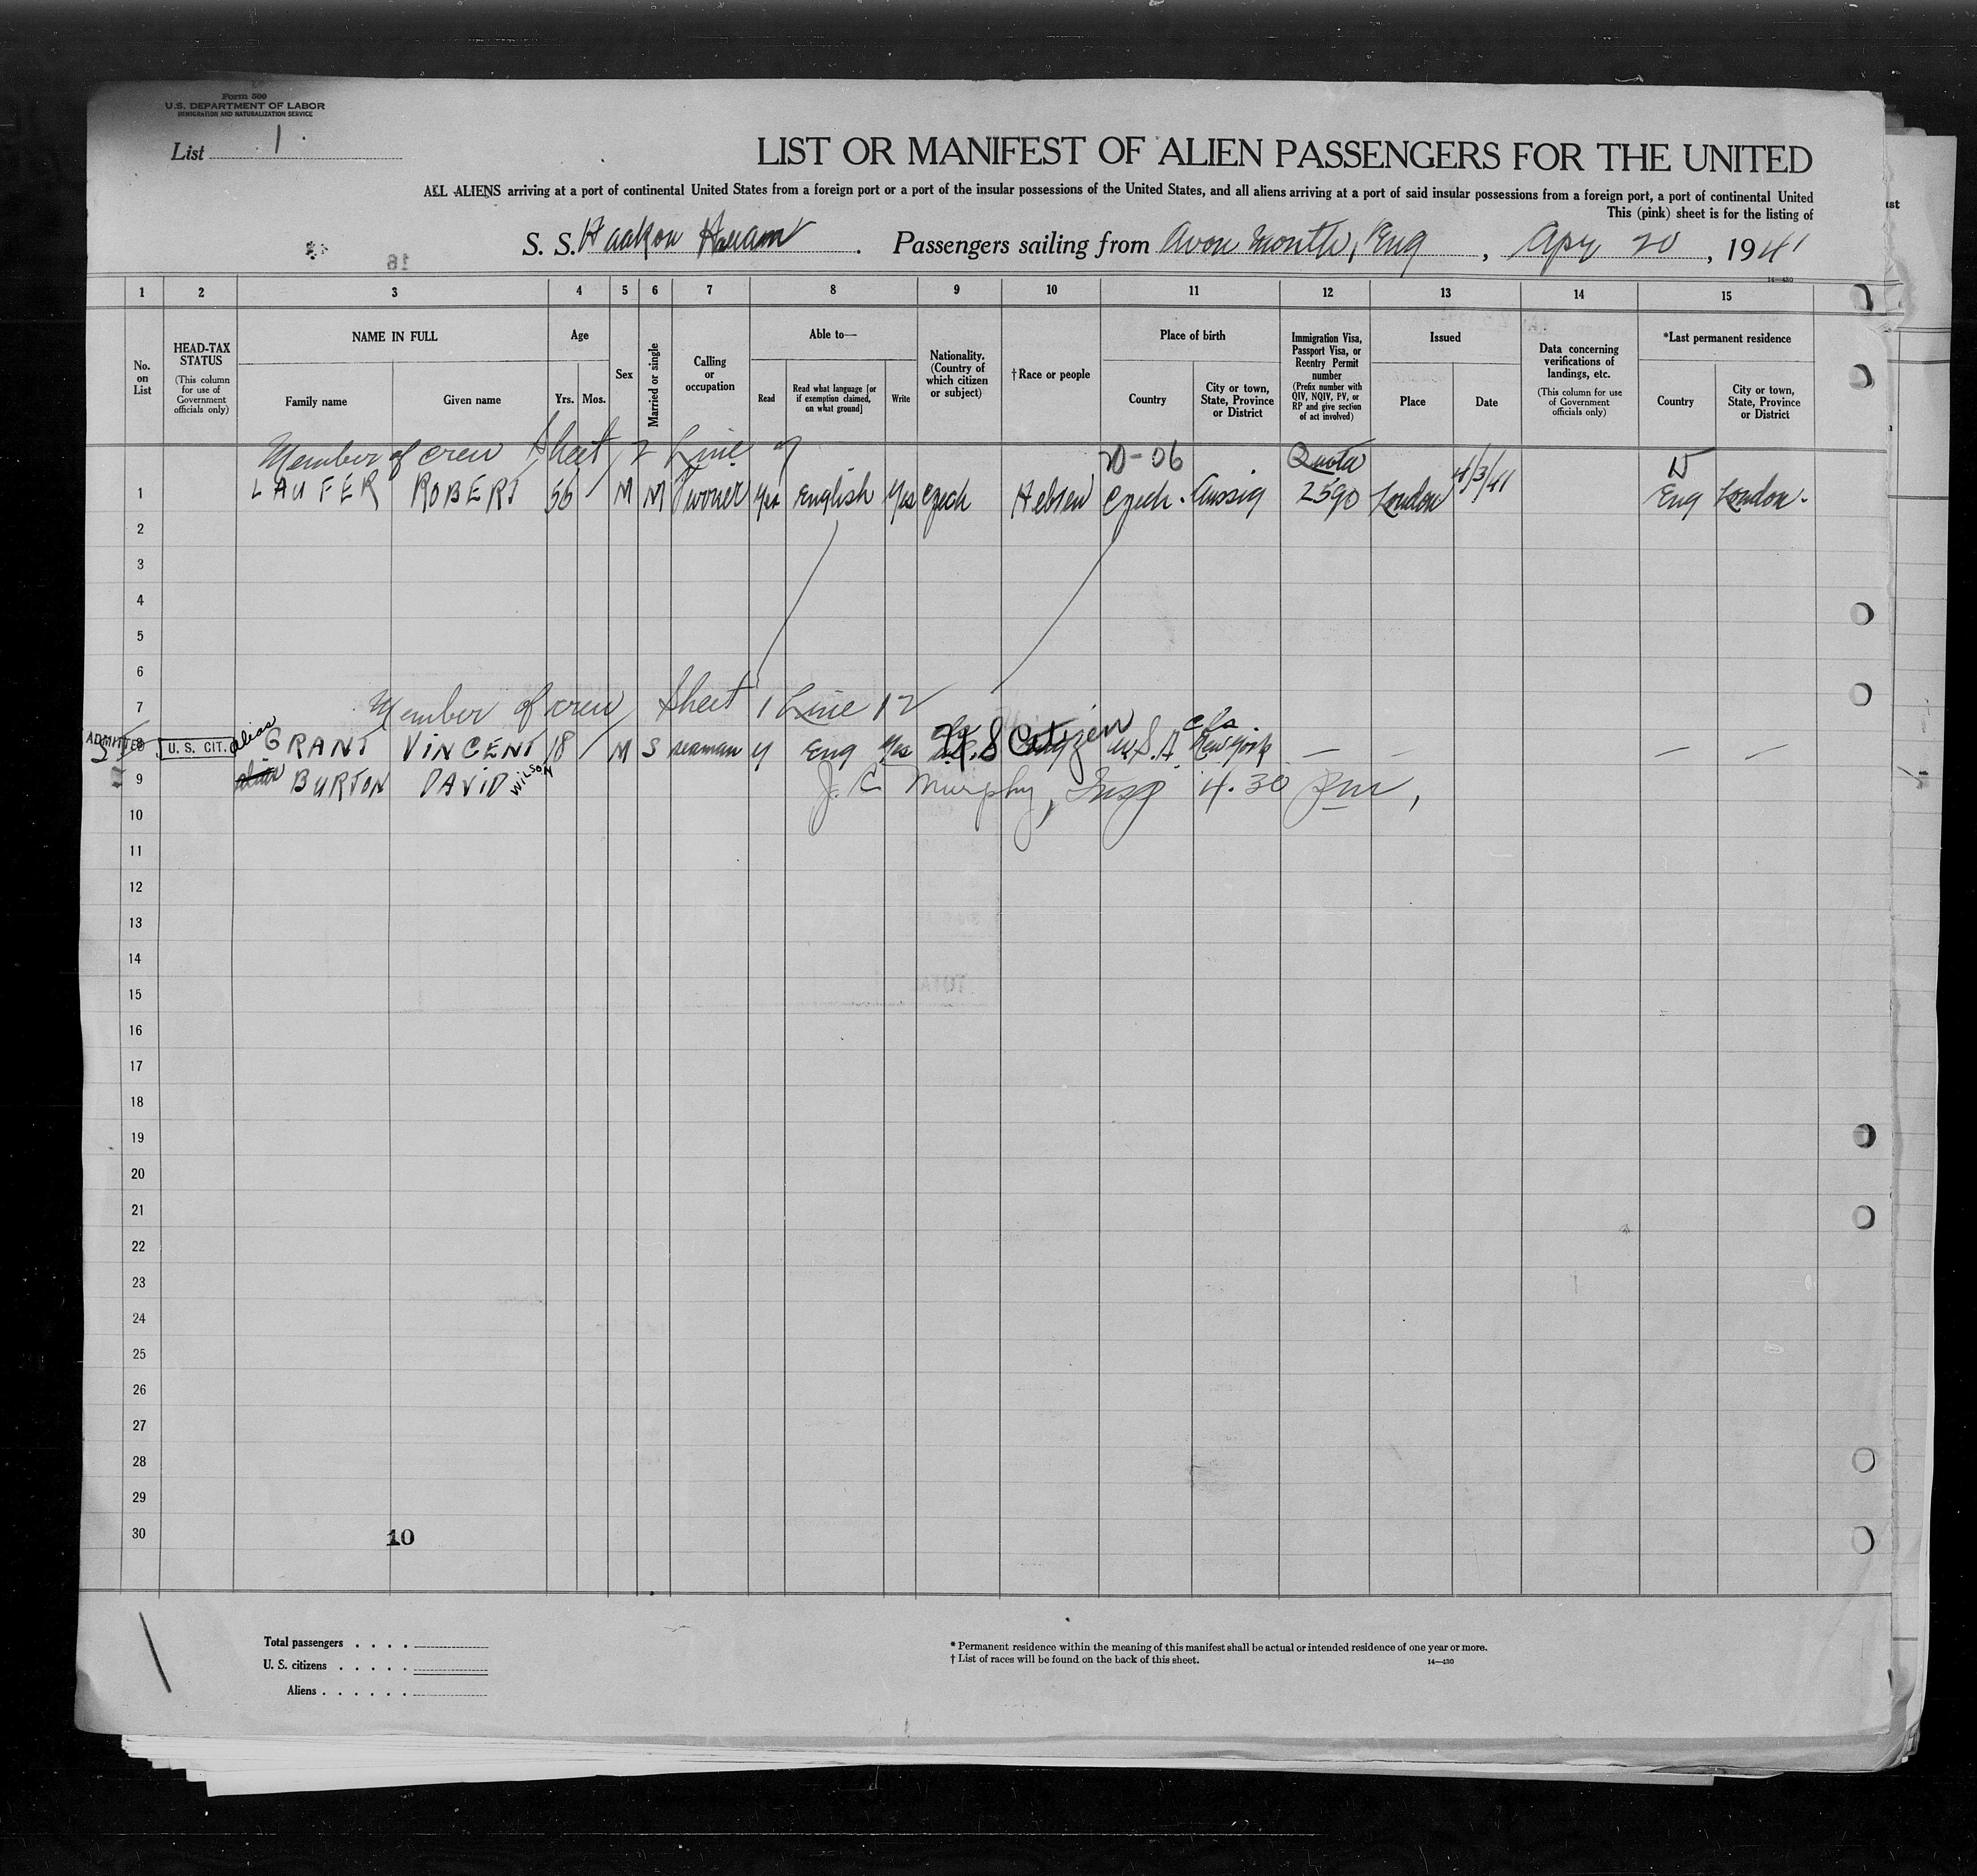 Form 500
U.S. DEPARTMENT OF LABOR
IMMIGRATION AND NATURALIZATION SERVICE
List 1
LIST OR MANIFEST OF ALIEN PASSENGERS FOR THE UNITED
ALL ALIENS arriving at a port of continental United States from a foreign port or a port of the insular possessions of the United States, and all aliens arriving at a port of said insular possessions from a foreign port, a port of continental United
This (pink) sheet is for the listing of
S. S. Haakon Hauan. Passengers sailing from Avon Month, Eng, Apr 20, 1941
14—430
1 2 3 4 5 6 7 8 9 10 11 12 13 14 15
No. on List
HEAD-TAX STATUS (This column for use of Government officials only)
NAME IN FULL
Family name Given name
Age
Yrs. Mos.
Sex
Married or single
Calling or occupation
Able to—
Read Read what language [or if exemption claimed, on what ground] Write
Nationality. (Country of which citizen or subject)
†Race or people
Place of birth
Country City or town, State, Province or District
Immigration Visa, Passport Visa, or Reentry Permit number (Prefix number with QIV, NQIV, PV, or RP and give section of act involved)
Issued
Place Date
Data concerning verifications of landings, etc. (This column for use of Government officials only)
*Last permanent residence
Country City or town, State, Province or District
Member of crew Sheet 2 Line 7 20-06 Quota
1 LAUFER ROBERT 56 M M Yes English Yes Czech Hebrew Czech. Aussig 2590 London 4/3/41 Eng London.
2
3
4
5
6
7 Member of crew Sheet 1 Line 12
ADMITTED 8 U. S. CIT. alias GRANT VINCENT 18 M S seaman y Eng Yes U.S Citizen U.S.A. New York — — — —
9 alias BURTON DAVID WILSON J. C Murphy, Insp 4.30 Pm,
10
11
12
13
14
15
16
17
18
19
20
21
22
23
24
25
26
27
28
29
30
10
Total passengers . . . .
U. S. citizens . . . . .
Aliens . . . . . .
* Permanent residence within the meaning of this manifest shall be actual or intended residence of one year or more.
† List of races will be found on the back of this sheet.
14—430